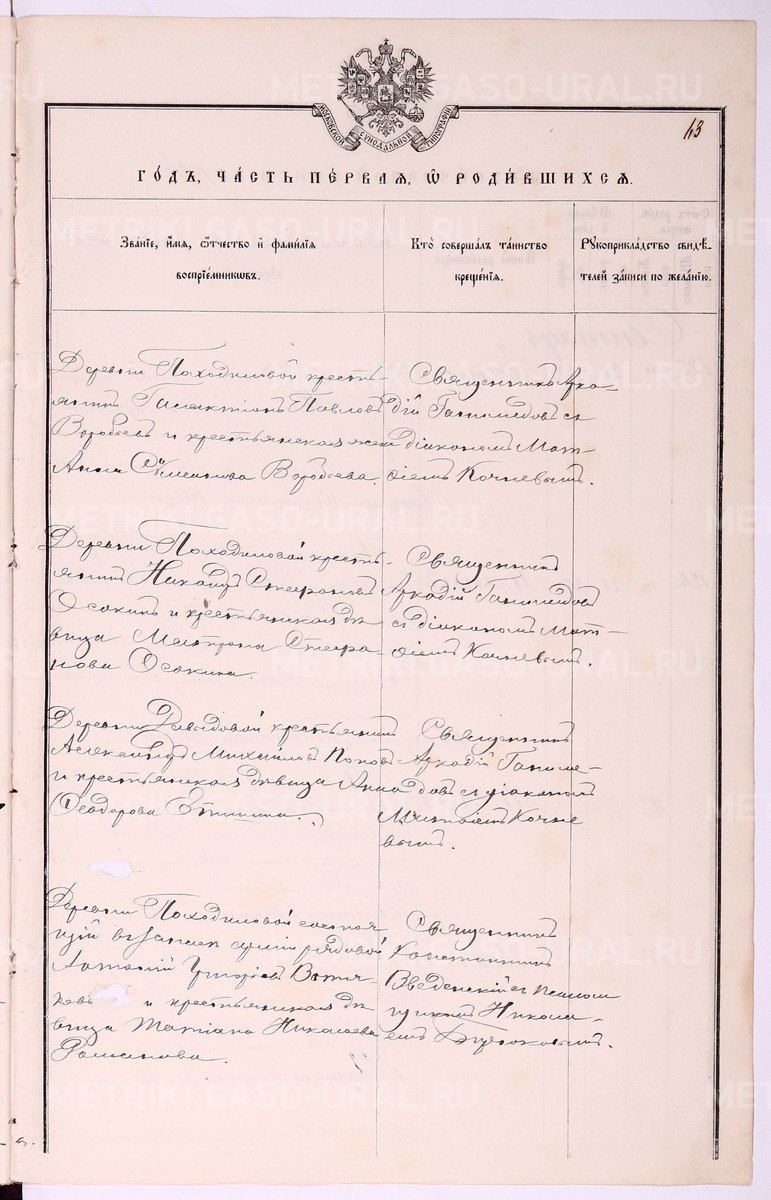 METRIKI.GASO-URAL.RU
МОСКОВСКОЙ СѴНОДАЛЬНОЙ ТИПОГРАФІИ
43
ГО́ДЪ, ЧА́СТЬ ПЕ́РВАЯ, Ѡ РОДИ́ВШИХСЯ.
Зва́нїе, и́мѧ, ѻ҆́тчество и҆ фами́лїѧ
воспрїе́мникѡвъ.
Кто̀ соверша́лъ та́инство
креще́нїѧ.
Рꙋкоприкла́дство свидѣ́-
телей за́писи по жела́нїю.
Деревни Походиловой кресть-
янинъ Галактіонъ Павловъ
Воробьевъ и крестьянская жена
Анна Семенова Воробьева.
Священникъ Арка-
дій Ганимедовъ съ
діакономъ Мат-
ѳіемъ Кочневымъ.
Деревни Походиловой кресть-
янинъ Никандръ Стефановъ
Осокинъ и крестьянская дѣ
вица Матрона Стефа-
нова Осокина.
Священникъ
Аркадій Ганимедовъ
съ діакономъ Мат-
ѳіемъ Кочневымъ.
Деревни Давыдовой крестьянинъ
Александръ Михайловъ Поповъ
и крестьянская дѣвица Анна
Ѳеодорова
Священникъ
Аркадій Ганиме-
довъ съ діакономъ
Матѳіемъ Кочне
вымъ.
Деревни Походиловой состоя
щій въ запасѣ арміи рядовой
Антоній Григорьевъ Вотя-
ковъ и крестьянская дѣ
вица Татіана Николаева
Романова.
Священникъ
Константинъ
Введенскій съ псалом
щикомъ Никола-
емъ